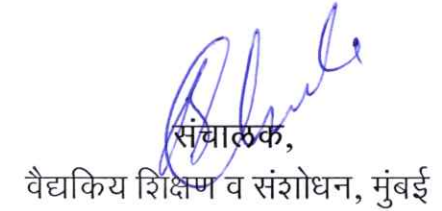 संचालक,
वैद्यकिय शिक्षण व संशोधन, मुंबई